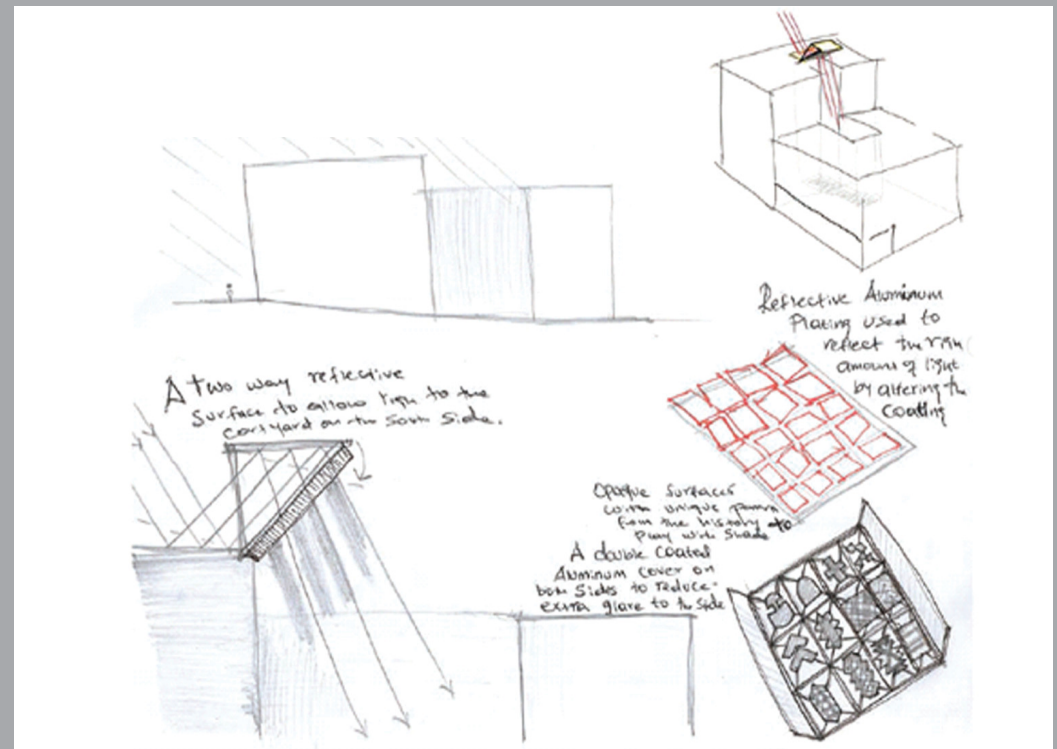 Reflective Aluminum
Plating used to
reflect the righ
amount of light
by altering the
coating
A two way reflective
surface to allow light to the
courtyard on the South Side.
Opaque surfaces
with unique
from the history to
play with shade
A double coated
Aluminum cover on
both sides to reduce
extra glare to the side